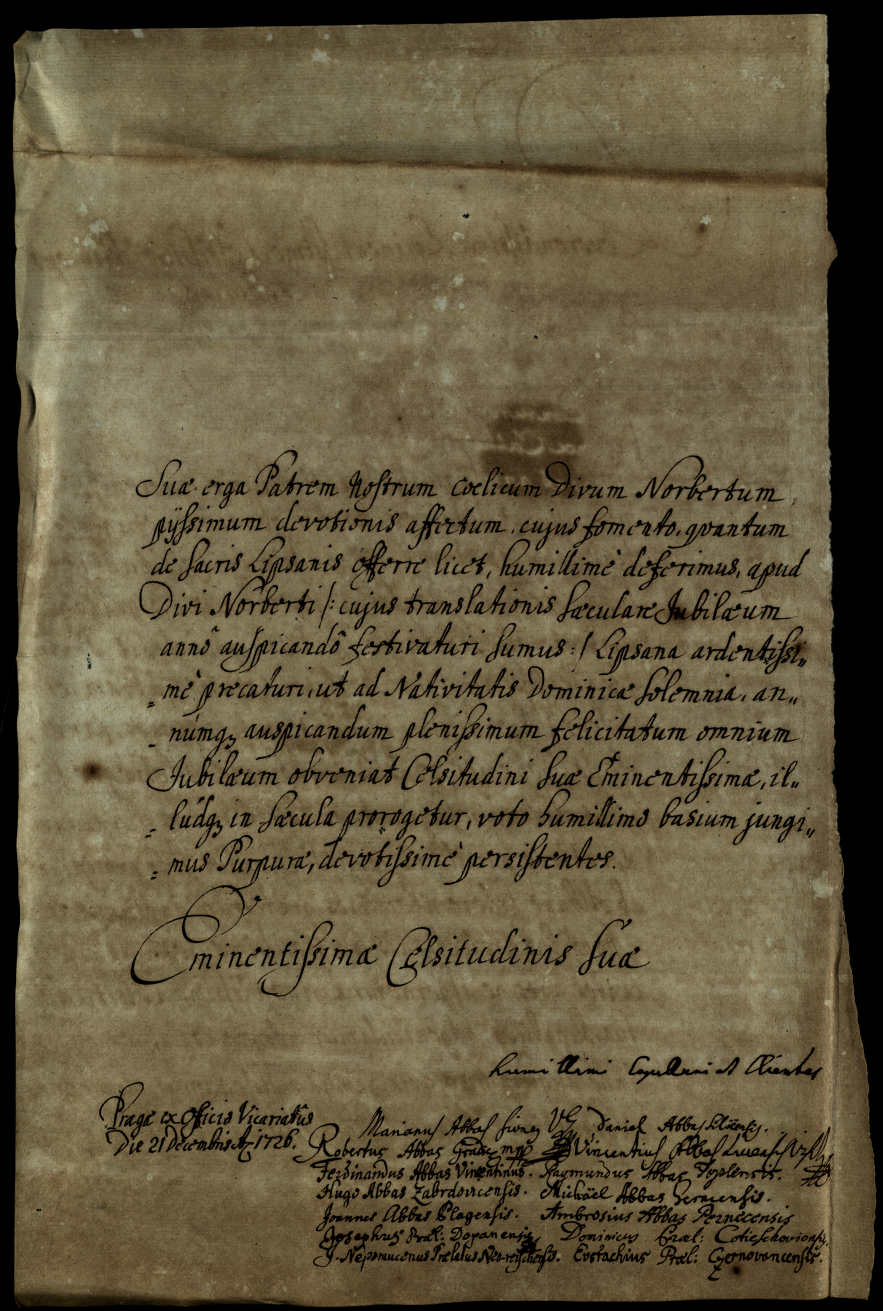 Suæ erga Patrem Nostrum coelicum Divum Norbertum,
pijssimum devotionis affectum, cujus fomento, qvantum
de Sacris Lipsanis offerre licet, humillimè deferimus, apud
Divi Norberti /: cujus translationis Sæculare Jubilæum
annô auspicandô festivaturi sumus :/ Lipsana ardentissi„
„mè precaturi, ut ad Nativitatis Dominicæ Solemnia, an„
„númq; auspicandum plenissimum felicitatum omnium
Jubilæum obveniat Celsitudini Suæ Eminentissimæ, il„
„lúdq; in Sæcula prorogetur, voto humillimo basium jungi„
„mus Purpuræ, devotissimè persistentes.
Eminentissimæ Celsitudinis Suæ
humillimi Capellani et Clientes
Pragæ ex Officio Vicariatûs
Die 21 Decembris Aô 1726.
Marianus Abbas Sioneus Daniel Abbas Siloensis.
Robertus Abbas Gradic. mpp Vincentius Abbas Lucensis
Ferdinandus Abbas Vincentinus. Raymundus Abbas Teplensis.
Hugo Abbas Zabrdovicensis. Michäel Abbas Geracensis.
Joannes Abbas Plagensis. Ambrosius Abbas Pernecensis
Josephus Præl: Doxanensis Dominicus Præl: Cotieschoviensis,
J. Nepomucenus Prælatus Neoreischensis. Eustachius Præl: Czernovancensis.